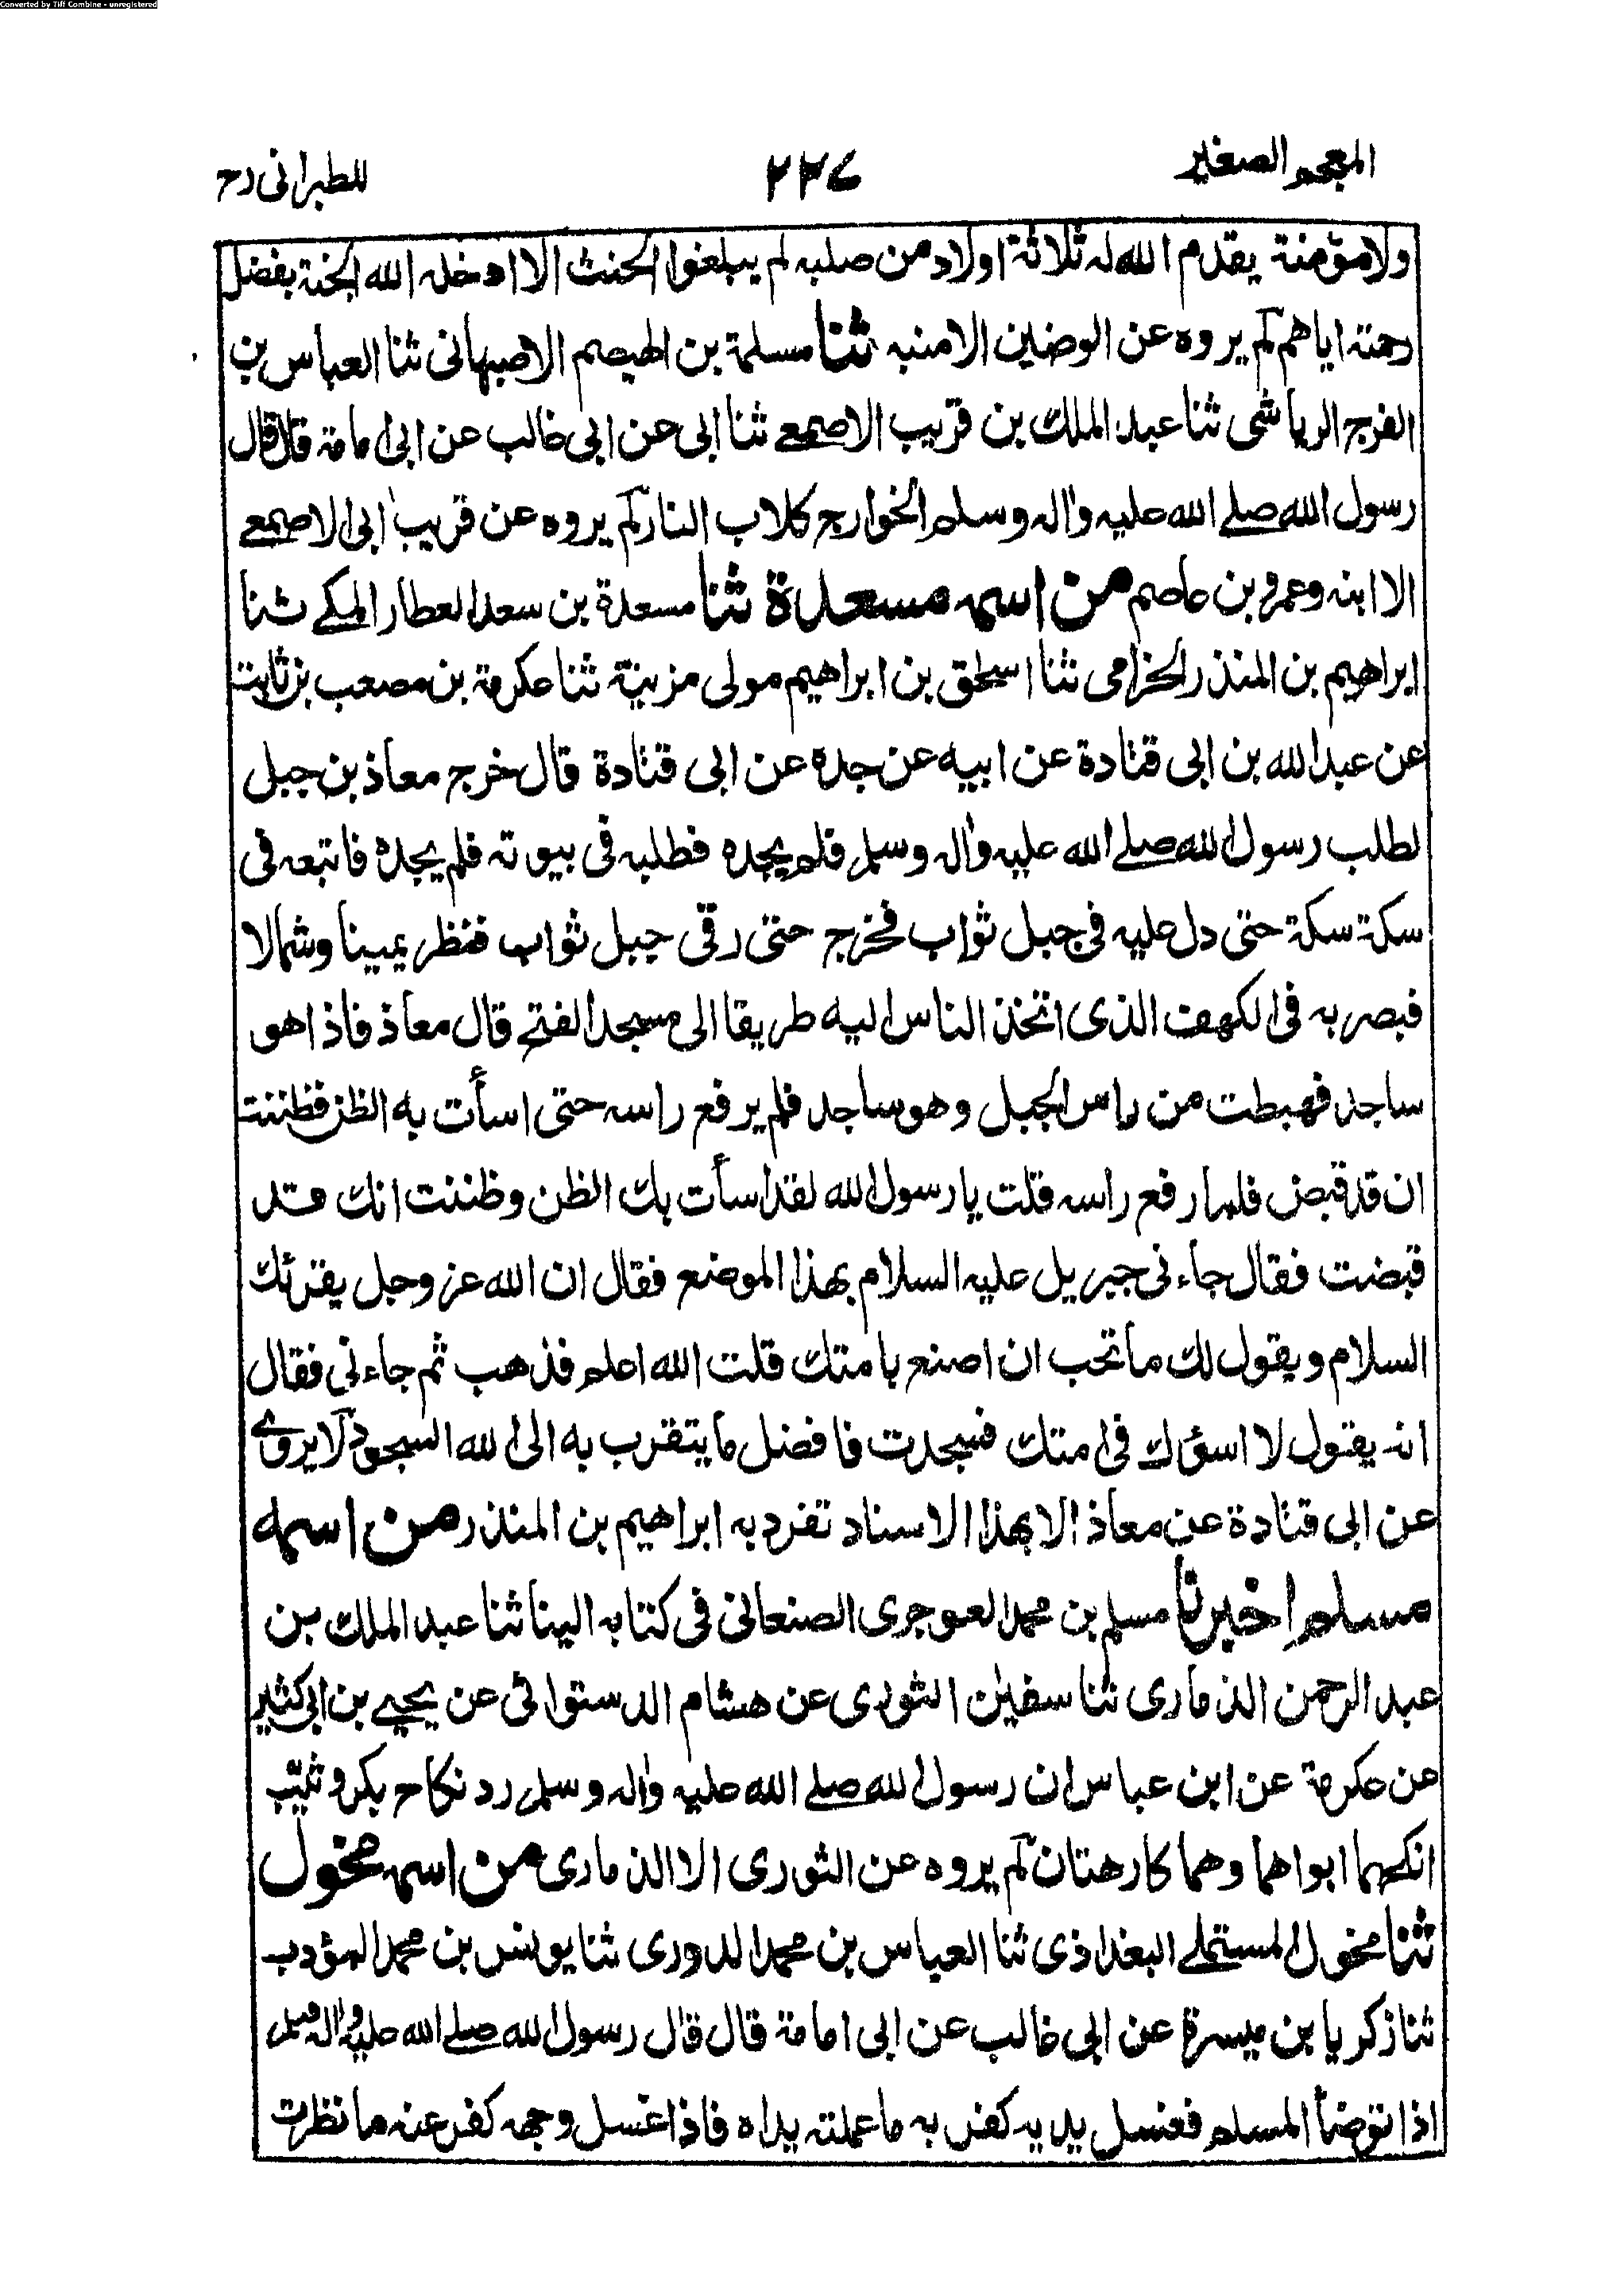 Converted by Tiff Combine - unregistered
المعجم الصغير
٢٢٧
للطبرانی رح
ولا مؤمنة يقدم الله له ثلاثة اولاد من صلبه لم يبلغوا الحنث الا ادخله الله الجنة بفضل
رحمته اياهم لم يروه عن الوضين الا منبه ثنا مسلمة بن الهيصم الاصبهانی ثنا العباس بن
الفرج الرياشی ثنا عبد الملك بن قريب الاصمعے ثنا ابی عن ابی غالب عن ابی امامة قال قال
رسول الله صلے الله عليه واٰله وسلم الخوارج كلاب النار لم يروه عن قريب ابی الاصمعے
الا ابنه وعمرو بن عاصم من اسمه مسعدة ثنا مسعدة بن سعد العطار المكے ثنا
ابراهيم بن المنذر الخزامی ثنا اسحٰق بن ابراهيم مولی مزينة ثنا عكرمة بن مصعب بن ثابت
عن عبد الله بن ابی قتادة عن ابيه عن جده عن ابی قتادة قال خرج معاذ بن جبل
لطلب رسول الله صلے الله عليه واٰله وسلم فلم يجده فطلبه فی بيوته فلم يجده فاتبعه فی
سكة سكة حتی دل عليه فی جبل ثواب فخرج حتی رقی جبل ثواب فنظر يمينا وشمالا
فبصر به فی الكهف الذی اتخذ الناس اليه طريقا الی مسجد الفتح قال معاذ فاذا هو
ساجد فهبطت من راس الجبل وهو ساجد فلم يرفع راسه حتی اسأت به الظن فظننت
ان قد قبض فلما رفع راسه قلت يا رسول الله لقد اسأت بك الظن وظننت انك قد
قبضت فقال جاءنی جبريل عليه السلام بهذا الموضع فقال ان الله عز وجل يقرئك
السلام ويقول لك ما تحب ان اصنع بامتك قلت الله اعلم فذهب ثم جاءنی فقال
انه يقول لا اسؤك فی امتك فسجدت فافضل ما يتقرب به الی الله السجود لا يروے
عن ابی قتادة عن معاذ الا بهذا الاسناد تفرد به ابراهيم بن المنذر من اسمه
مسلم اخبرنا مسلم بن محمد العوجری الصنعانی فی كتابه الينا ثنا عبد الملك بن
عبد الرحمن الذماری ثنا سفيٰن الثوری عن هشام الدستوائی عن يحيے بن ابی كثير
عن عكرمة عن ابن عباس ان رسول الله صلے الله عليه واٰله وسلم رد نكاح بكر وثيّب
انكحهما ابواهما وهما كارهتان لم يروه عن الثوری الا الذماری من اسمه مخول
ثنا مخول المستملے البغداذی ثنا العباس بن محمد الدوری ثنا يونس بن محمد المؤدب
ثنا زكريا بن ميسرة عن ابی غالب عن ابی امامة قال قال رسول الله صلے الله عليه واٰله وسلم
اذا توضأ المسلم فغسل يديه كفر به ما عملته يداه فاذا غسل وجهه كفر عنه ما نظرت